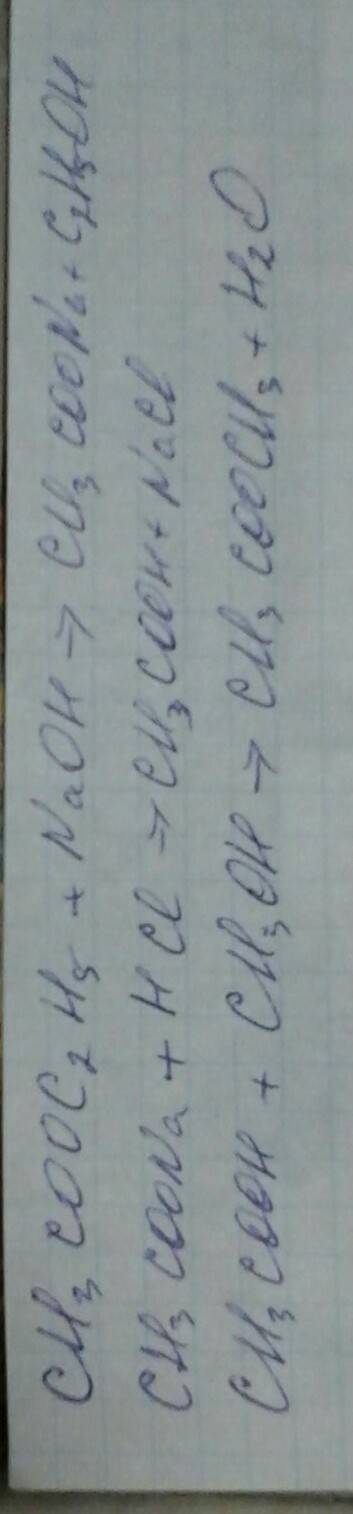 CH₃COOC₂H₅ + NaOH → CH₃COONa + C₂H₅OH
CH₃COONa + HCl → CH₃COOH + NaCl
CH₃COOH + CH₃OH → CH₃COOCH₃ + H₂O